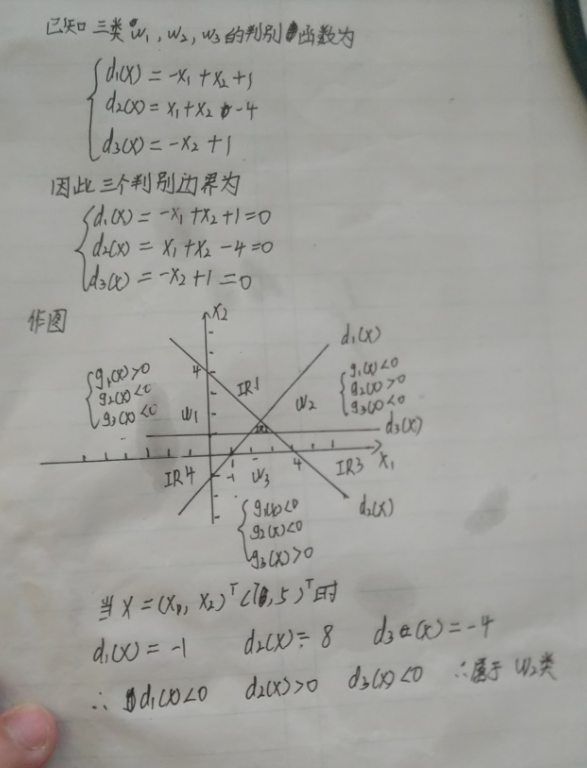 已知三类 w₁, w₂, w₃的判别函数为
d₁(x) = -x₁ + x₂ + 1
d₂(x) = x₁ + x₂ - 4
d₃(x) = -x₂ + 1
因此三个判别边界为
d₁(x) = -x₁ + x₂ + 1 = 0
d₂(x) = x₁ + x₂ - 4 = 0
d₃(x) = -x₂ + 1 = 0
作图
x₂
d₁(x)
g₁(x) > 0
g₂(x) < 0
g₃(x) < 0
4
IR1
w₁
w₂
g₁(x) < 0
g₂(x) > 0
g₃(x) < 0
d₃(x)
IR4
-1
w₃
4
IR3
x₁
g₁(x) < 0
g₂(x) < 0
g₃(x) > 0
d₂(x)
当 X = (x₁, x₂)ᵀ , 5)ᵀ时
d₁(x) = -1 d₂(x) = 8 d₃(x) = -4
∴ d₁(x) < 0 d₂(x) > 0 d₃(x) < 0 ∴属于 w₂类